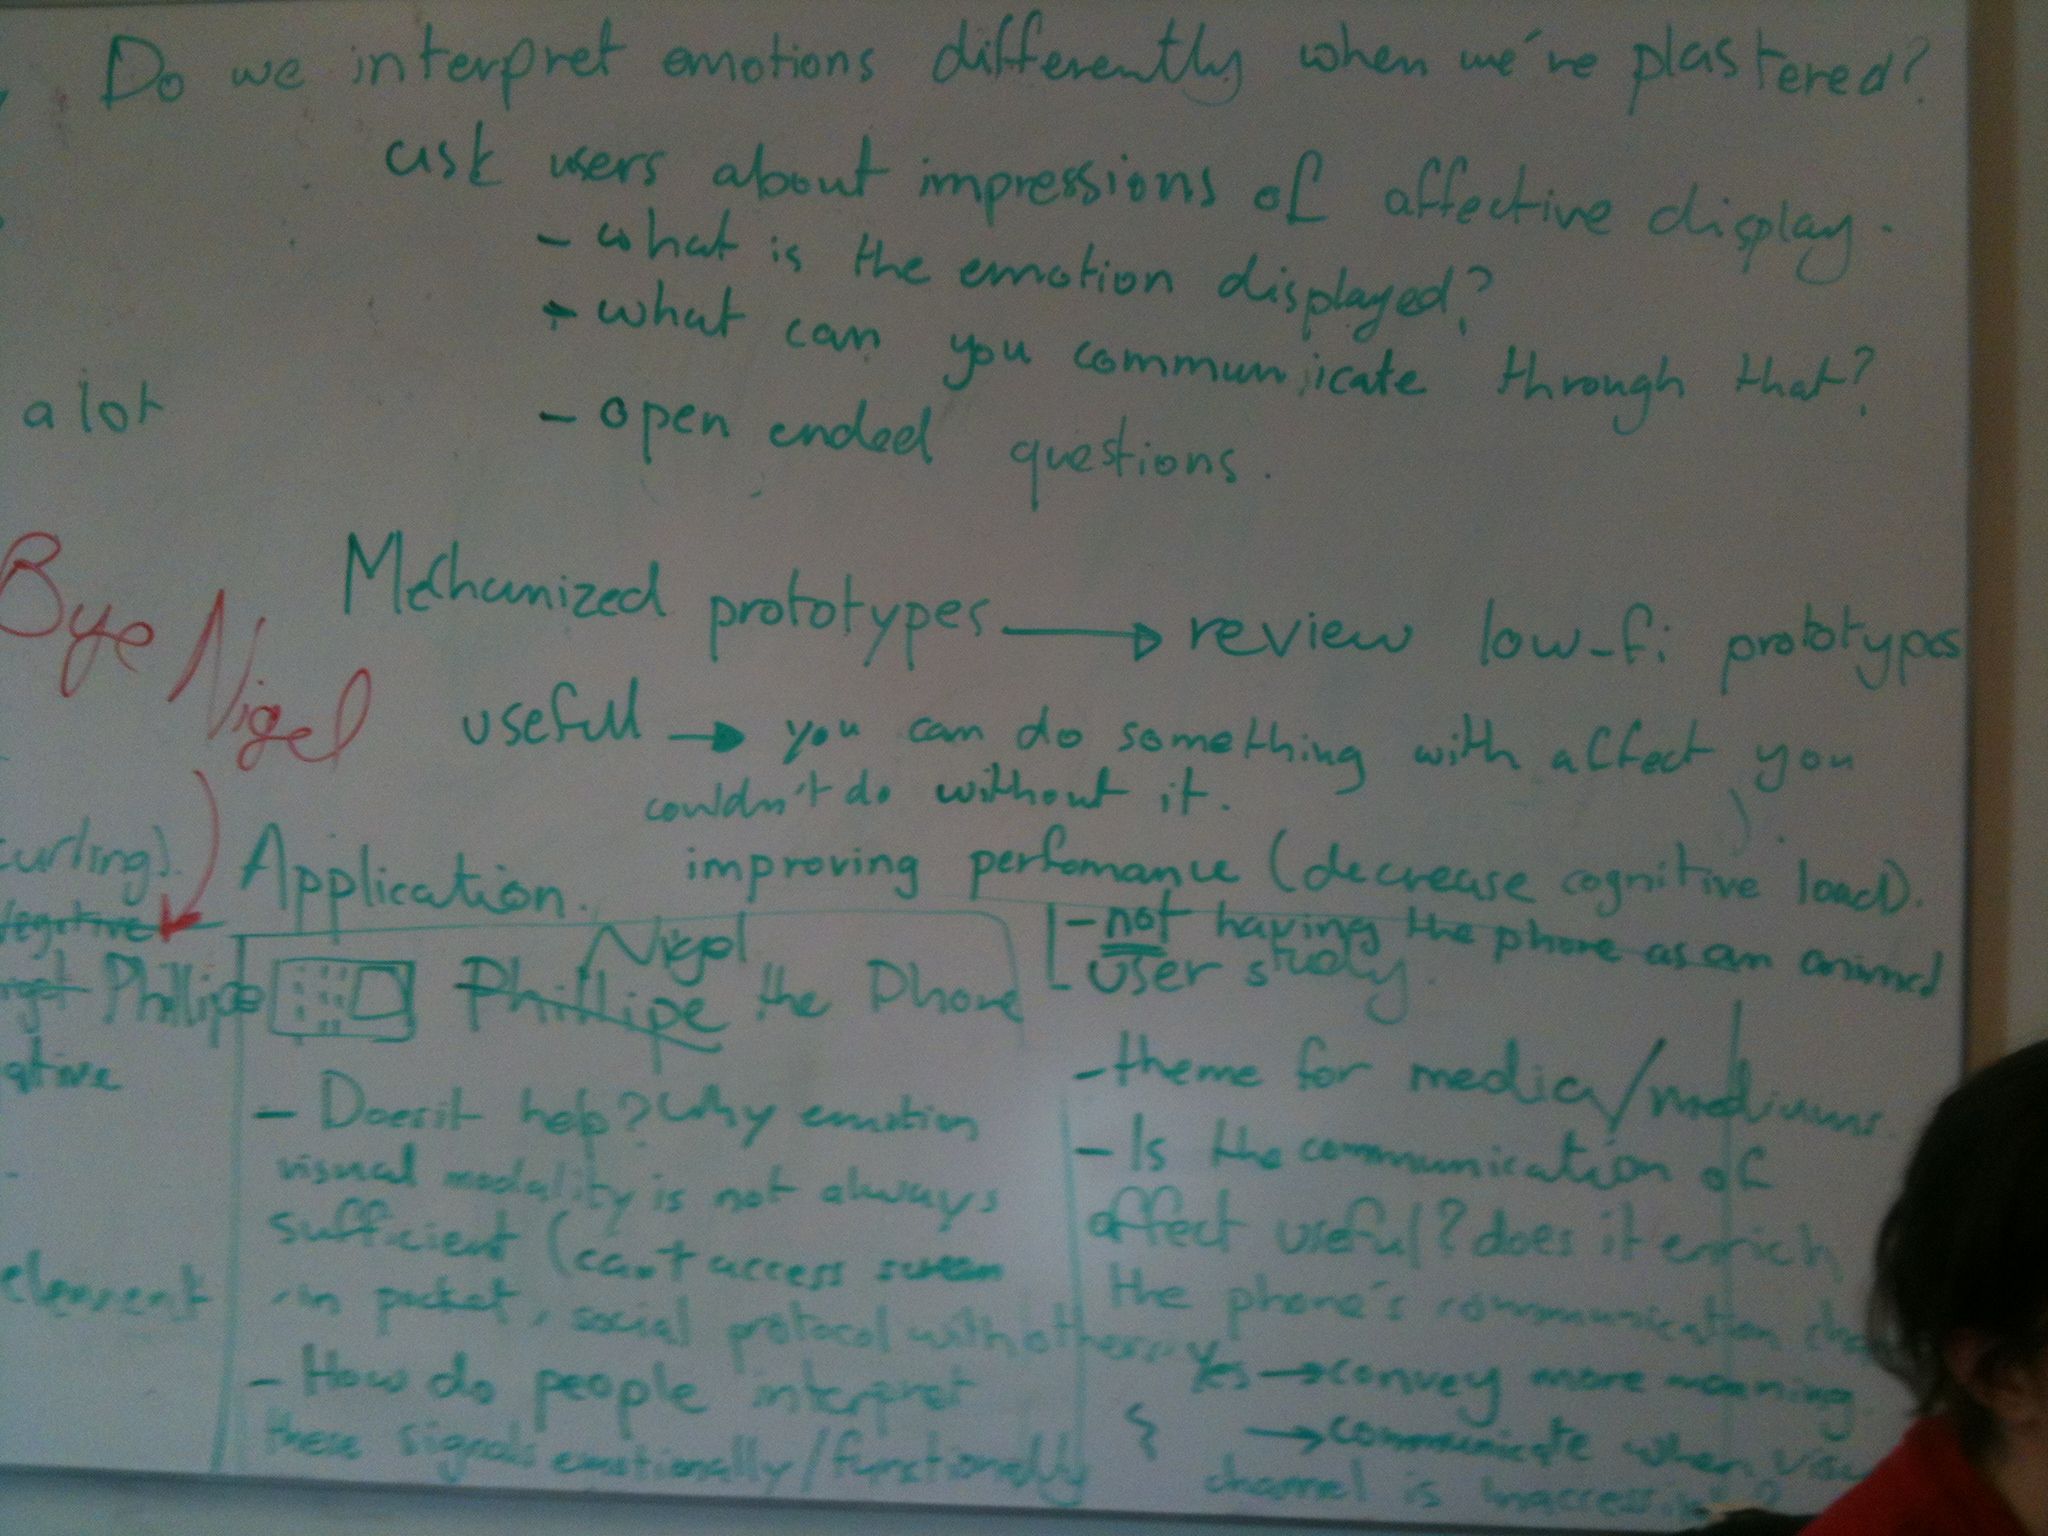 Do we interpret emotions differently when we're plastered?
ask users about impressions of affective display.
- what is the emotion displayed?
- what can you communicate through that?
- open ended questions.
a lot
Bye Nigel
Mechanized prototypes → review low-fi prototypes
usefull → you can do something with affect you
couldn't do without it.
improving perfomance (decrease cognitive load).
curling).
Application.
- not having the phone as an animal
- user study.
Phillipe
Nigel
Phillipe the Phone
ative
- Does it help? Why emotion
visual modality is not always
sufficient (can't access screen
in pocket, social protocol with others
- How do people interpret
these signals emotionally/functionally
element
- theme for media/mediums.
- Is the communication of
affect useful? does it enrich
the phone's communication
Yes → convey more meaning
→ communicate when
channel is